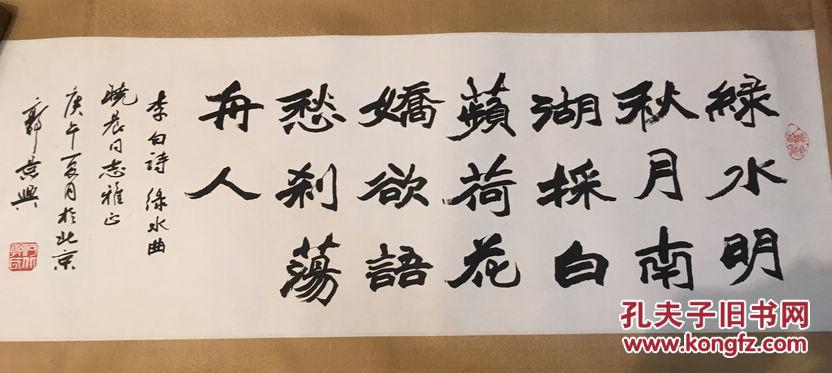 綠水明
秋月南
湖採白
蘋荷花
嬌欲語
愁刹蕩
舟人
李白詩 綠水曲
曉晨同志雅正
庚午夏月於北京
郭景興
孔夫子旧书网
www.kongfz.com